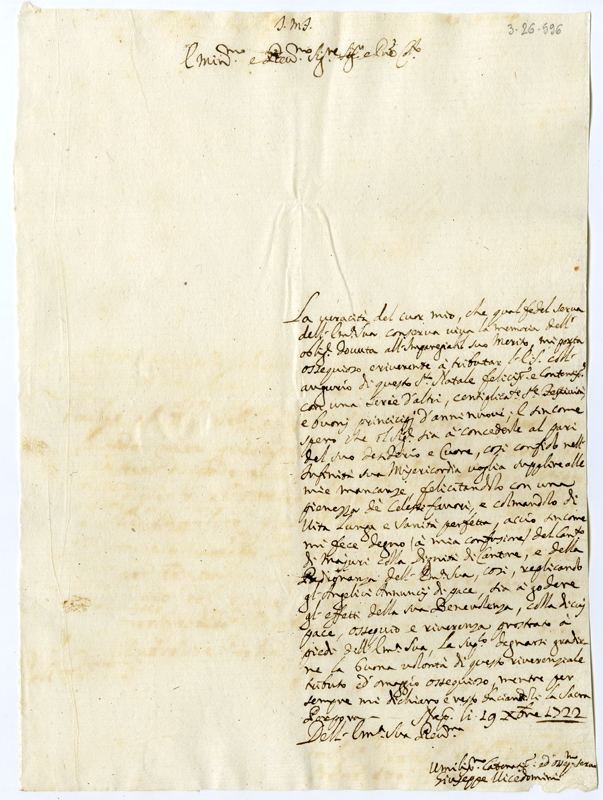 J.M.J.
3-26-596
Illmo. e Revmo. Sigre.
La veracità del cuor mio, che qual fedel serva
dell' Em. Sua conserva viva la memoria dell'
obblig. dovuta all' Impareggiabil suo Merito, mi porta
ossequioso e riverente à tributar coll'
augurio di questo Sto. Natale felicis. e Contentis.
con una serie d'altri,
e buoni principij d'anni nuovi; E sincome
spero che ol Sigr. sia à concederle al pari
del suo desiderio e Cuore, così confido nell'
Infinita sua Misericordia voglia supplire alle
mie mancanze, felicitandolo con una
pienezza de Celesti favori, e colmandolo di
Vita Lunga e Sanità perfetta, acciò sincome
mi fece degno (à mia confusione) del Canto
di Majuri colla Dignità di Cantore, e della
dell' Em. Sua, così, replicando
gl' Angelici Annuncij di pace, sia à godere
gl' effetti della sua Benevolenza, colla di cui
pace, ossequio e riverenza prostrato à
piedi dell' Em. Sua, la suplo. degnarsi gradir
ne la buona volontà di questo riverenziale
tributo ed' omaggio ossequioso, mentre per
sempre mi dichiaro e resto baciandoli la Sacra
Porpora Nap. li 19 Xbre 1722
Dell' Em. Sua Revma.
Umiliss. ed osseq. servo
Giuseppe Vicedomini